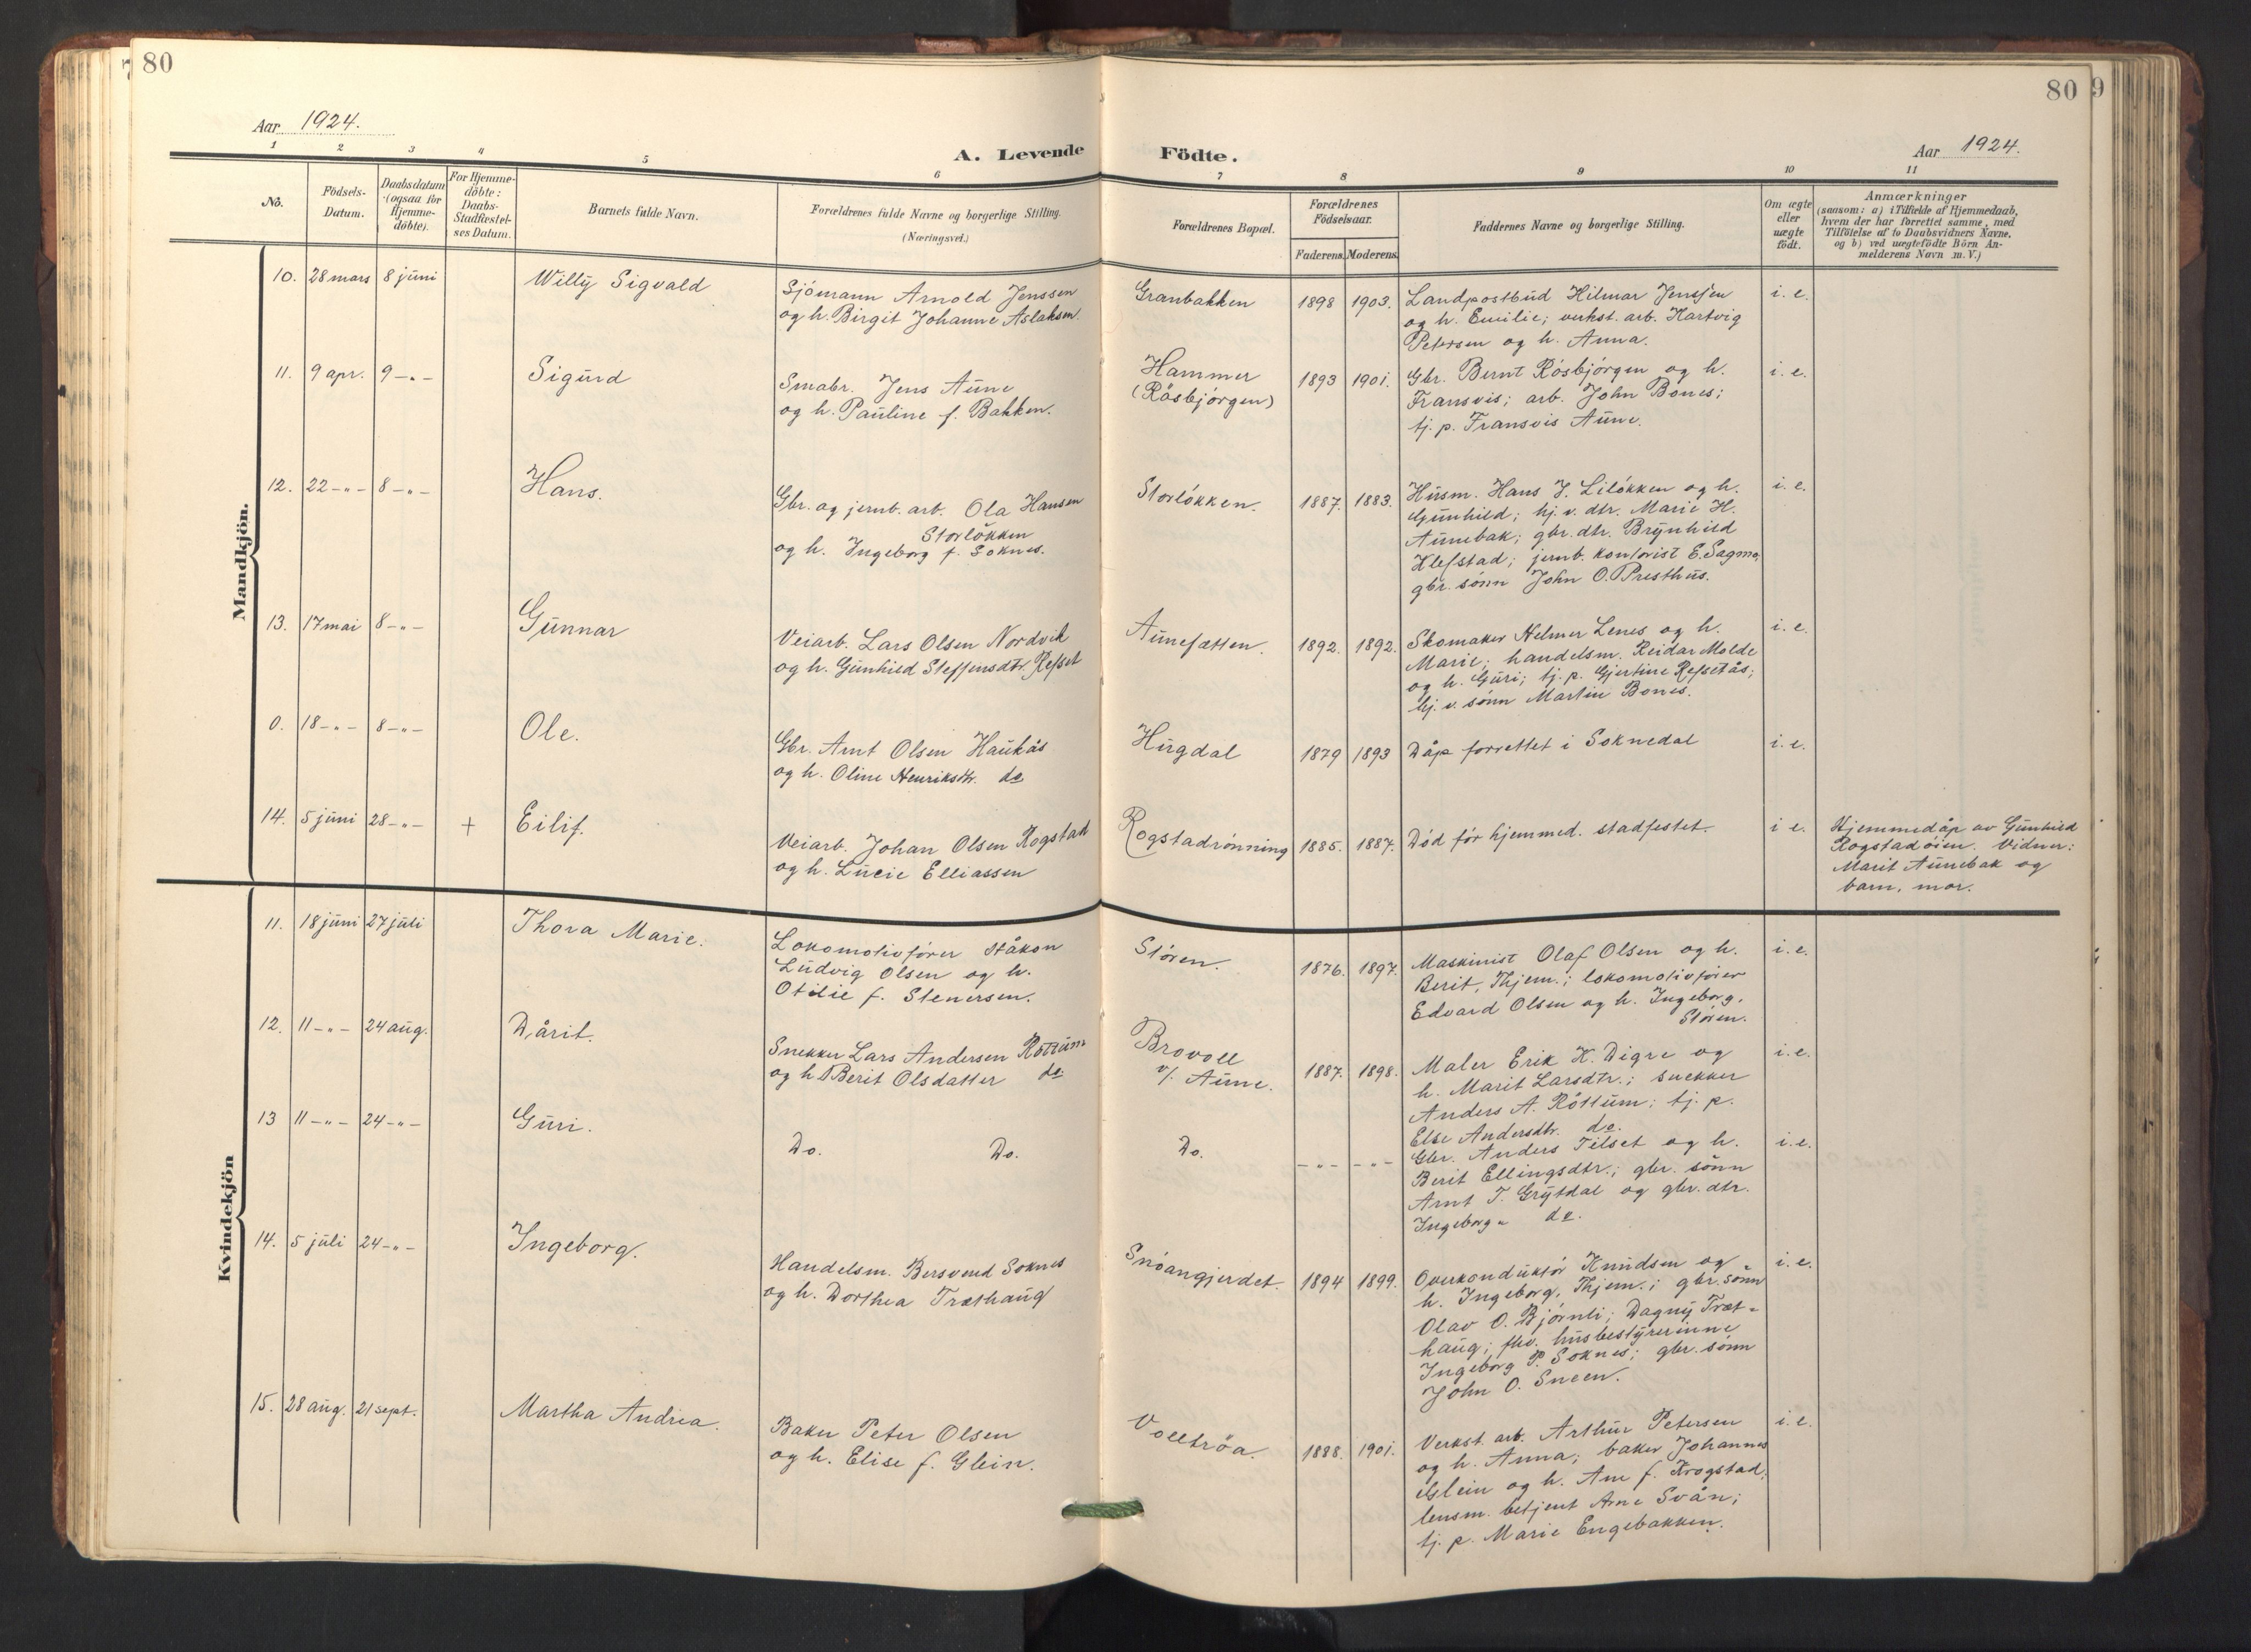 80
80
9
Aar 1924.
Aar 1924.
A. Levende Födte.
1 2 3 4 5 6 7 8 9 10 11
No.
Födsels-
Datum.
Daabsdatum
(ogsaa for
Hjemme-
döbte).
For Hjemme-
döbte:
Daabs-
Stadfæstel-
ses Datum.
Barnets fulde Navn.
Forældrenes fulde Navne og borgerlige Stilling.
(Næringsvei.)
Forældrenes Bopæl.
Forældrenes
Födselsaar.
Faderens. Moderens.
Faddernes Navne og borgerlige Stilling.
Om ægte
eller
uægte
födt.
Anmærkninger
(saasom: a) i Tilfælde af Hjemmedaab,
hvem der har forrettet samme, med
Tilföielse af to Daabsvidners Navne,
og b) ved uægtefödte Börn An-
melderens Navn m. V.)
Mandkjön.
10. 28 mars 8 juni Willy Sigvald
Sjömann Arnold Jenssen
og h. Birgit Johanne Aslaksen.
Granbakken 1898 1903.
Landpostbud Hilmar Jenssen
og h. Emilie; verkst. arb. Hartvig
Petersen og h. Anna.
i. e.
11. 9 apr. 9 -"- Sigurd
Smabr. Jens Aune
og h. Pauline f. Bakken.
Hammer
(Rösbjörgen)
1893 1901.
Gbr. Bernt Rösbjörgen og h.
Fransvis; arb. John Bones;
tj. p. Fransvis Aune.
i. e.
12. 22 -"- 8 -"- Hans.
Gbr. og jernb. arb. Ola Hansen
Storlökken
og h. Ingeborg f. Soknes.
Storlökken. 1887. 1883.
Husm. Hans J. Lilökken og h.
Gunhild; hj. v. dtr. Marie H.
Aunebak; gbr. dtr. Brynhild
Klefstad; jernb. kontorist E. Sagmo,
gbr. sönn John O. Presthus.
i. e.
13. 17 mai 8 -"- Gunnar
Veiarb. Lars Olsen Nordvik
og h. Gunhild Steffensdtr. Refset
Aunefætten. 1892. 1892.
Skomaker Helmer Lenes og h.
Marie; handelsm. Reidar Molde
og h. Guri; tj. p. Gjertine Refsetås;
hj. v. sönn Martin Bones.
i. e.
0. 18 -"- 8 -"- Ole.
Gbr. Arnt Olsen Haukås
og h. Oline Henriksdtr. do
Hugdal 1879 1893
Dåp forrettet i Soknedal
i. e.
14. 5 juni 28 -"- + Eilif.
Veiarb. Johan Olsen Rogstad
og h. Lucie Elliassen
Rogstadrönning 1885. 1887.
Död för hjemmed. stadfestet.
i e.
Hjemmedåp av Gunhild
Rogstadöien. Vidner:
Marit Aunebak og
barn. mor.
Kvindekjön
11. 18 juni 27 juli Thora Marie.
Lokomotivförer Håkon
Ludvig Olsen og h.
Otilie f. Stenersen.
Stören. 1876. 1897.
Maskinist Olaf Olsen og h.
Berit, Thjem.; lokomotivförer
Edvard Olsen og h. Ingeborg,
Stören.
i. e.
12. 11 -"- 24 aug. Dårit.
Snekker Lars Andersen Röttum
og h. Berit Olsdatter do
Brovoll
v/. Aune.
1887. 1898.
Maler Erik K. Digre og
h. Marit Larsdtr.; snekker
Anders A. Röttum; tj. p.
Else Andersdtr. do.
i. e.
13 11 -"- 24 -"- Guri.
Do. Do.
Do. -"- -"-
Gbr. Anders Tilset og h.
Berit Ellingsdtr.; gbr. sönn
Arnt T. Grytdal og gbr. dtr.
Ingeborg " do.
i. e.
14. 5 juli 24 -"- Ingeborg.
Handelsm. Bersvend Soknes
og h. Dorthea Træthaug
Snöangjerdet. 1894 1899.
Overkonduktör Knudsen og
h. Ingeborg, Thjem.; gbr. sönn
Olav O. Björnli; Dagny Træt-
haug; fhv. husbestyrerinne
Ingeborg P. Soknes; gbr. sönn
John O. Sneen.
i. e.
15. 28 aug. 21 sept. Martha Andrea.
Baker Peter Olsen
og h. Elise f. Glein.
Volltröa. 1888. 1901.
Verkst. arb. Arthur Petersen
og h. Anna; baker Johannes
Glein og h. Ane f. Krogstad;
lensm. betjent Arne Svån;
tj. p. Marie Engebakken.
i. e.